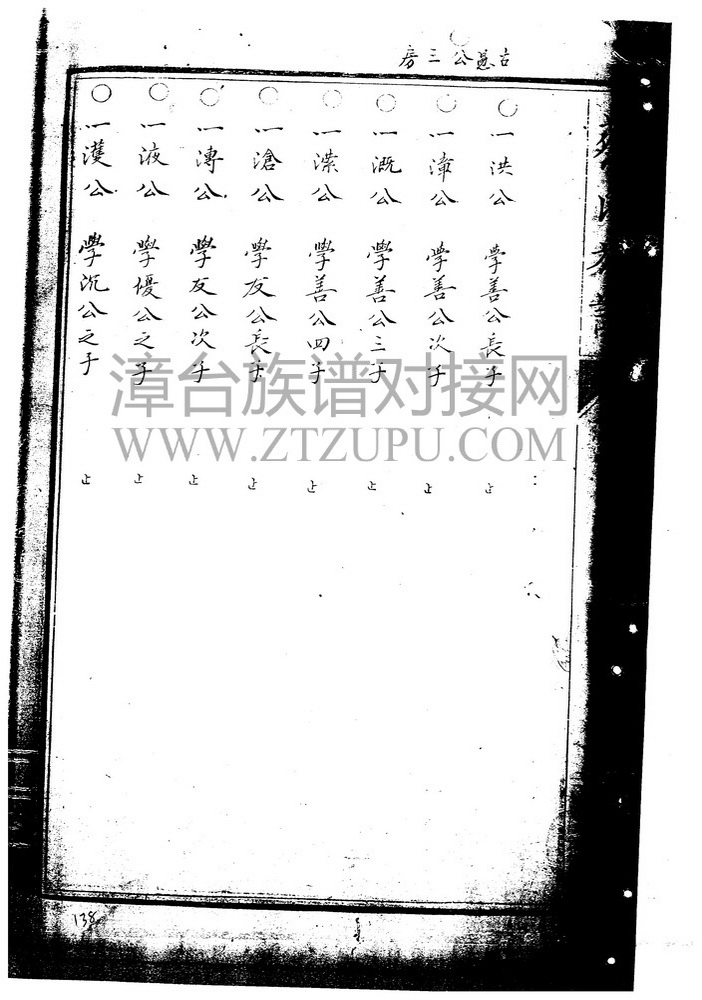 古愚公三房
一洪公 學善公長子 止
一漳公 學善公次子 止
一溉公 學善公三子 止
一潆公 學善公四子 止
一滄公 學友公長子 止
一溥公 學友公次子 止
一液公 學優公之子 止
一濩公 學沉公之子 止
漳台族谱对接网
WWW.ZTZUPU.COM
138